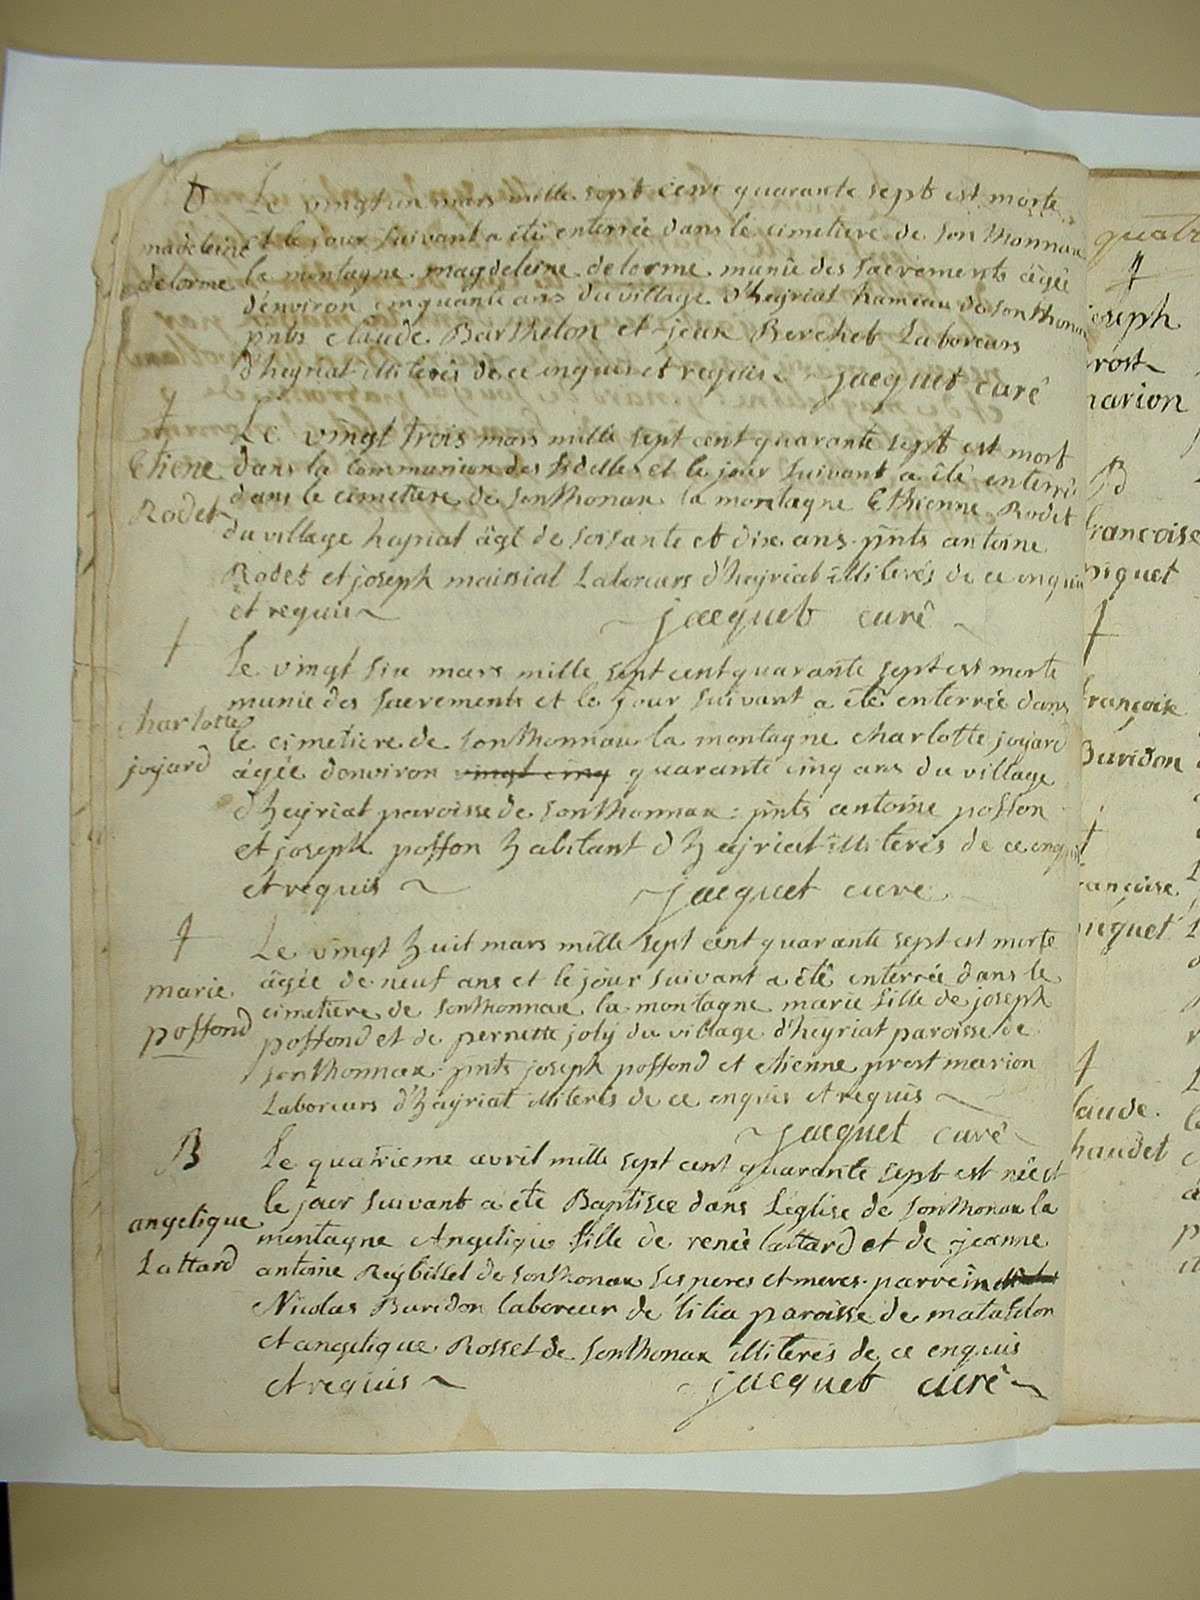 Le vingt un mars mille sept cent quarante sept est morte
madeleine et le jour suivant a été enterrée dans le cimetiere de sonthonnax
delorme la montagne magdeleine delorme munie des sacrements âgée
d'environ cinquante ans du village d'heyriat hameau de sonthonax
pnts claude Barthelon et jean Berchet Laboreurs
d'heyriat illiterés de ce enquis et requis jacquet curé
Le vingt trois mars mille sept cent quarante sept est mort
Etiene dans la Communion des fidelles et le jour suivant a été enterré
Rodet dans le cimetiere de sonthonax la montagne Ethienne Rodet
du village hapriat âgé de soisante et dix ans pnts antoine
Rodet et joseph maissiat Laboreurs d'heyriat illiterés de ce enquis
et requis jacquet curé
Le vingt six mars mille sept cent quarante sept est morte
munie des sacrements et le jour suivant a été enterrée dans
charlotte le cimetiere de sonthonnax la montagne charlotte joyard
joyard âgée d'environ vingt cinq quarante cinq ans du village
d'heyriat paroisse de sonthonnax : pnts antoine posson
et joseph posson habitant d'heyriat illiterés de ce enquis
et requis jacquet curé
Le vingt huit mars mille sept cent quarante sept est morte
marie âgée de neuf ans et le jour suivant a été enterrée dans le
cimetiere de sonthonnax la montagne marie fille de joseph
possond possond et de pernette joly du village d'heyriat paroisse de
sonthonnax : pnts joseph possond et etienne prost marion
Laboreurs d'heyriat illiterés de ce enquis et requis
jacquet curé
B Le quatrieme avril mille sept cent quarante sept est née et
le jour suivant a été Baptisée dans L'église de sonthonax la
angelique montagne Angelique fille de renée lattard et de jeanne
Lattard antoine Reybillet de sonthonax ses peres et meres parrein
Nicolas Buridon laboreur de lilia paroisse de matafelon
et angelique Rosset de sonthonax illiterés de ce enquis
et requis jacquet curé
joseph
prost
marion
B
françoise
piguet
françoise
Buridon
françoise
claude